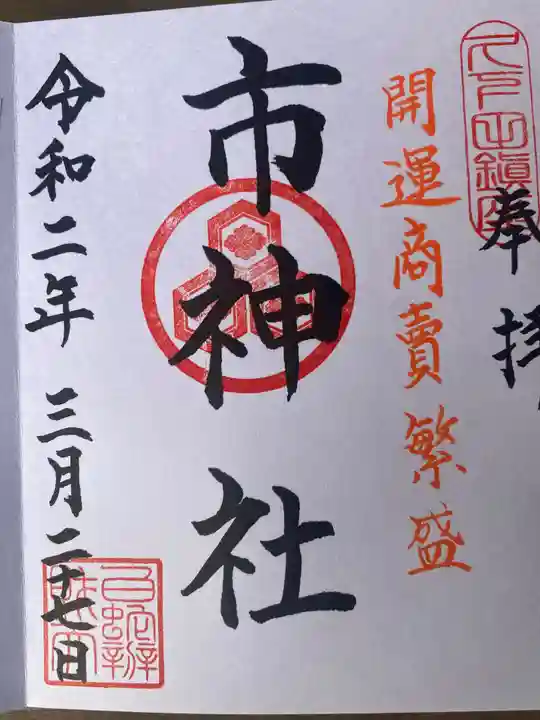 奉拝
開運商賣繁盛
市神社
令和二年 三月二十七日